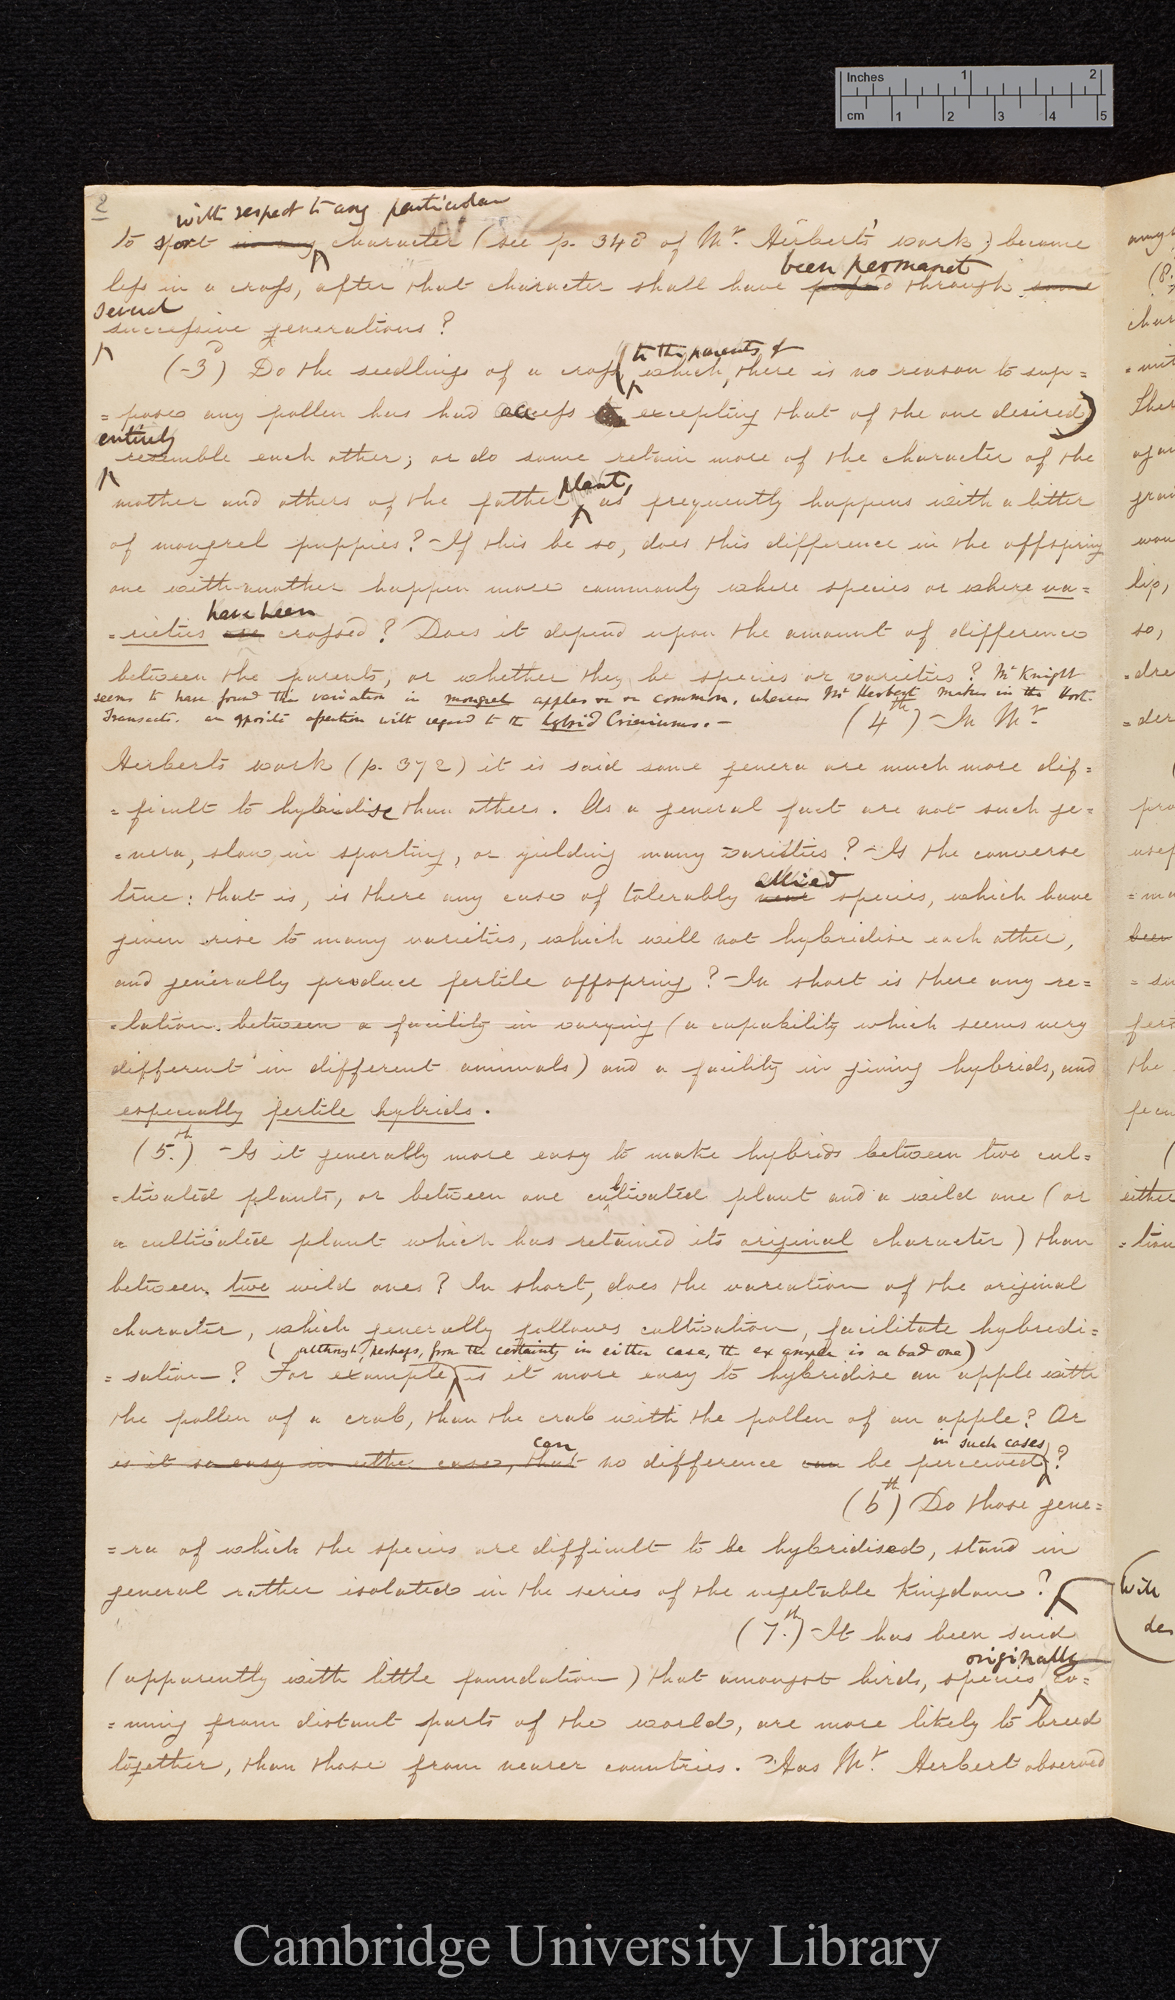 Inches 1 2
cm 1 2 3 4 5
2
with respect to any particular
to sport in any character (see p. 348 of Mr. Herbert's work) become
been permanet
less in a cross, after that character shall have passed through some
several
successive generations?
(-3d) Do the seedlings of a cross, (to the parents of which, there is no reason to sup=
=pose any pollen has had access to excepting that of the one desired)
entirely
resemble each other; or do some retain more of the character of the
plant,
mother and others of the father as frequently happens with a litter
of mongrel puppies? -If this be so, does this difference in the offspring
one with another happen more commonly where species or where va=
have been
=rieties are crossed? Does it depend upon the amount of difference
between the parents, or whether they be species or varieties? Mr Knight
seems to have found this variation in mongrel apples common, whereas Mr Herbert makes in the Hort.
Transacts. an opposite assertion with regard to the hybrid Crinums. -
(4th) -In Mr.
Herbert's work (p. 372) it is said some genera are much more dif=
=ficult to hybridise than others. As a general fact are not such ge=
=nera, slow in sporting, or yielding many varieties? -Is the converse
allied
true: that is, is there any case of tolerably near species, which have
given rise to many varieties, which will not hybridise each other,
and generally produce fertile offspring? -In short is there any re=
=lation between a facility in varying (a capability which seems very
different in different animals) and a facility in giving hybrids, and
especially fertile hybrids.
(5.th) -Is it generally more easy to make hybrids between two cul=
=tivated plants, or between one cultivated plant and a wild one (or
a cultivated plant which has retained its original character) than
between two wild ones? In short, does the variation of the original
character, which generally follows cultivation, facilitate hybridi=
(although, perhaps, from the certainty in either case, the example is a bad one)
=sation-? For example, is it more easy to hybridise an apple with
the pollen of a crab, than the crab with the pollen of an apple? Or
can in such cases
is it so easy in either case, that no difference can be perceived?
(6th) Do those gene=
=ra of which the species are difficult to be hybridised, stand in
general rather isolated in the series of the vegetable kingdom?
(7.th) -It has been said
originally
(apparently with little foundation) that amongst birds, species co=
=ming from distant parts of the world, are more likely to breed
together, than those from nearer countries. -Has Mr. Herbert observed
Cambridge University Library